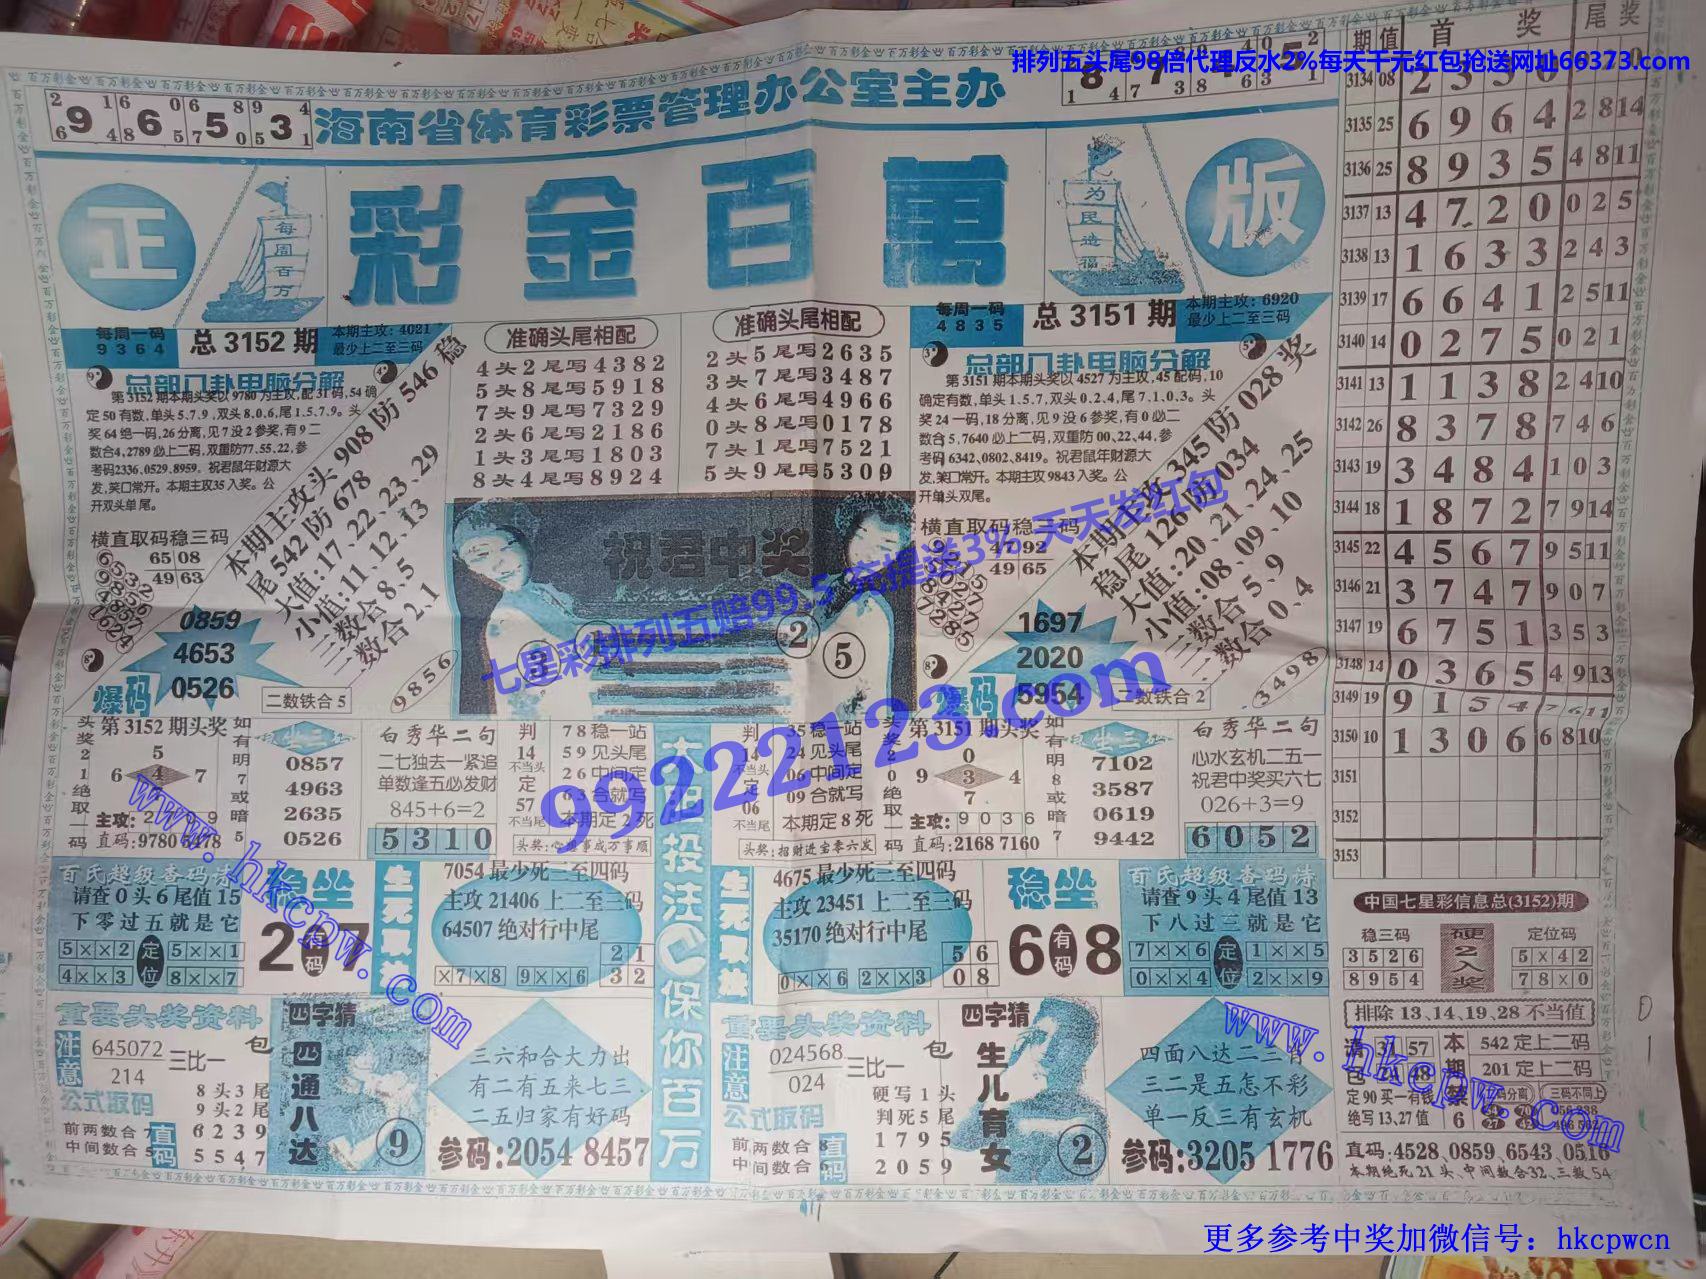 排列五头尾98倍代理反水2%每天千元红包抢送网址66373.com
海南省体育彩票管理办公室主办
9 6 5 3
正
彩金百萬
版
每周百万
为民造福
每周一码
9364
总3152期
本期主攻:4021
最少上二至三码
总部门卦电脑分解
第3152期本期头奖以9780为主攻,配31码,54确
定50有数,单头5.7.9,双头8.0.6,尾1.5.7.9。头
奖64绝一码,26分离,见7没2参奖,有9二
数合4,2789必上二码,双重防77.55.22,参
考码2336,0529,8959。祝君鼠年财源大
发,笑口常开。本期主攻35入奖。公
开双头单尾。
横直取码稳三码
6508
4963
本期主攻头908防546稳
尾542防678
大值:17、22、23、29
小值:11、12、13
三数合8、5
三数合2、1
0859
4653
0526
爆码
二数铁合5
9856
准确头尾相配
4头2尾写4382
5头8尾写5918
7头9尾写7329
2头6尾写2186
1头3尾写1803
8头4尾写8924
准确头尾相配
2头5尾写2635
3头7尾写3487
4头6尾写4966
0头8尾写0178
7头1尾写7521
5头9尾写5309
祝君中奖
② ⑤
每周一码
4835
总3151期
本期主攻:6920
最少上二至三码
总部门卦电脑分解
第3151期本期头奖以4527为主攻,45配码,10
确定有数,单头1.5.7,双头0.2.4,尾7.1.0.3。头
奖24一码,18分离,见9没6参奖,有0必二
数合5,7640必上二码,双重防00、22、44,参
考码6342、0802、8419。祝君鼠年财源大
发,笑口常开。本期主攻9843入奖。公
开单头双尾。
横直取码稳三码
4792
4965
本期主攻345防028奖
稳尾126防034
大值:20、21、24、25
小值:08、09、10
三数合5、9
三数合0、4
1697
2020
5954
爆码
二数铁合2
3498
七星彩排列五赔99.5 充提送3% 天天发红包
99222123.com
第3152期头奖
头奖21绝取一码
5
6 4 7
直码:9780 6478
如有明7或暗5
0857
4963
2635
0526
白秀华二句
二七独去一紧追
单数逢五必发财
845+6=2
5310
判14不当头
定57不当尾
78稳一站
59见头尾
26中间定
63合就写
本期定2死
头奖:心想事成万事顺
大胆投法保你百万
判14不当头
定06不当尾
35稳一站
24见头尾
06中间定
09合就写
本期定8死
头奖:招财进宝零六发
第3151期头奖
0
9 3 4
7
主攻:9036
直码:2168 7160
如有明8或暗7
7102
3587
0619
9442
白秀华二句
心水玄机二五一
祝君中奖买六七
026+3=9
6052
百氏超级查码诗
请查0头6尾值15
下零过五就是它
5××2 定位 5××1
4××3 8××7
稳坐
2有码7
生死取技
7054最少死二至四码
主攻21406上二至三码
64507绝对行中尾
×7×8 9××6
21
32
生死取技
4675最少死二至四码
主攻23451上二至三码
35170绝对行中尾
0××6 2××3
56
08
稳坐
6有码8
百氏超级查码诗
请查9头4尾值13
下八过三就是它
7××6 定位 1××5
0××4 2××9
重要头奖资料
注意
645072
214
三比一
包
8头3尾
公式取码
9头2尾
前两数合7
中间数合5
直码
6239
5547
四字猜
四通八达
⑨
三六和合大力出
有二有五来七三
二五归家有好码
参码:2054 8457
重要头奖资料
注意
024568
024
三比一
包
硬写1头
公式取码
判死5尾
前两数合8
中间数合6
直码
1795
2059
四字猜
生儿育女
②
四面八达二三有
三二是五怎不彩
单一反三有玄机
参码:3205 1776
www.hkcpw.com
www.hkcpw.com
期 值 首奖 尾奖
3134 08 2330
3135 25 6964 2 8 14
3136 25 8935 4 8 11
3137 13 4720 0 2 5
3138 13 1633 2 4 3
3139 17 6641 2 5 11
3140 14 0275 0 2 1
3141 13 1138 2 4 10
3142 26 8378 7 4 6
3143 19 3484 1 0 3
3144 18 1872 7 9 14
3145 22 4567 9 5 11
3146 21 3747 9 0 7
3147 19 6751 3 5 3
3148 14 0365 4 9 13
3149 19 9154 7 6 11
3150 10 1306 6 8 10
3151
3152
3153
中国七星彩信息总(3152)期
稳三码
3526
8954
硬2入奖
定位码
5×42
78×0
排除13、14、19、28不当值
542定上二码
201定上二码
定90买一有钱
绝写13、27值
三码不同上
直码:4528、0859、6543、0516
本期绝死21头、中间数合32、三数54
更多参考中奖加微信号：hkcpwcn